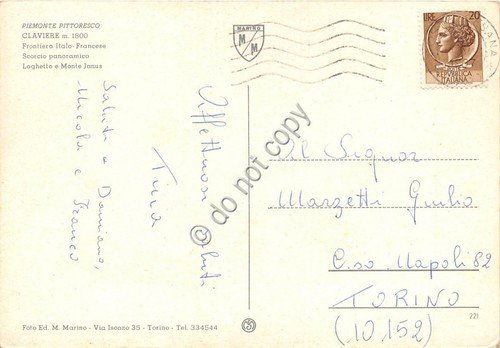 PIEMONTE PITTORESCO
CLAVIERE m. 1800
Frontiera Italo-Francese
Scorcio panoramico
Laghetto e Monte Janus
Saluti a Damiano,
Nicola e Franco
Affettuosi Saluti
Tina
MARINO
M M
LIRE 20
REPUBBLICA
ITALIANA
Al Signor
Marzetti Giulio
C.so Napoli 82
TORINO
(10152)
221
Foto Ed. M. Marino - Via Isonzo 35 - Torino - Tel. 334544
do not copy